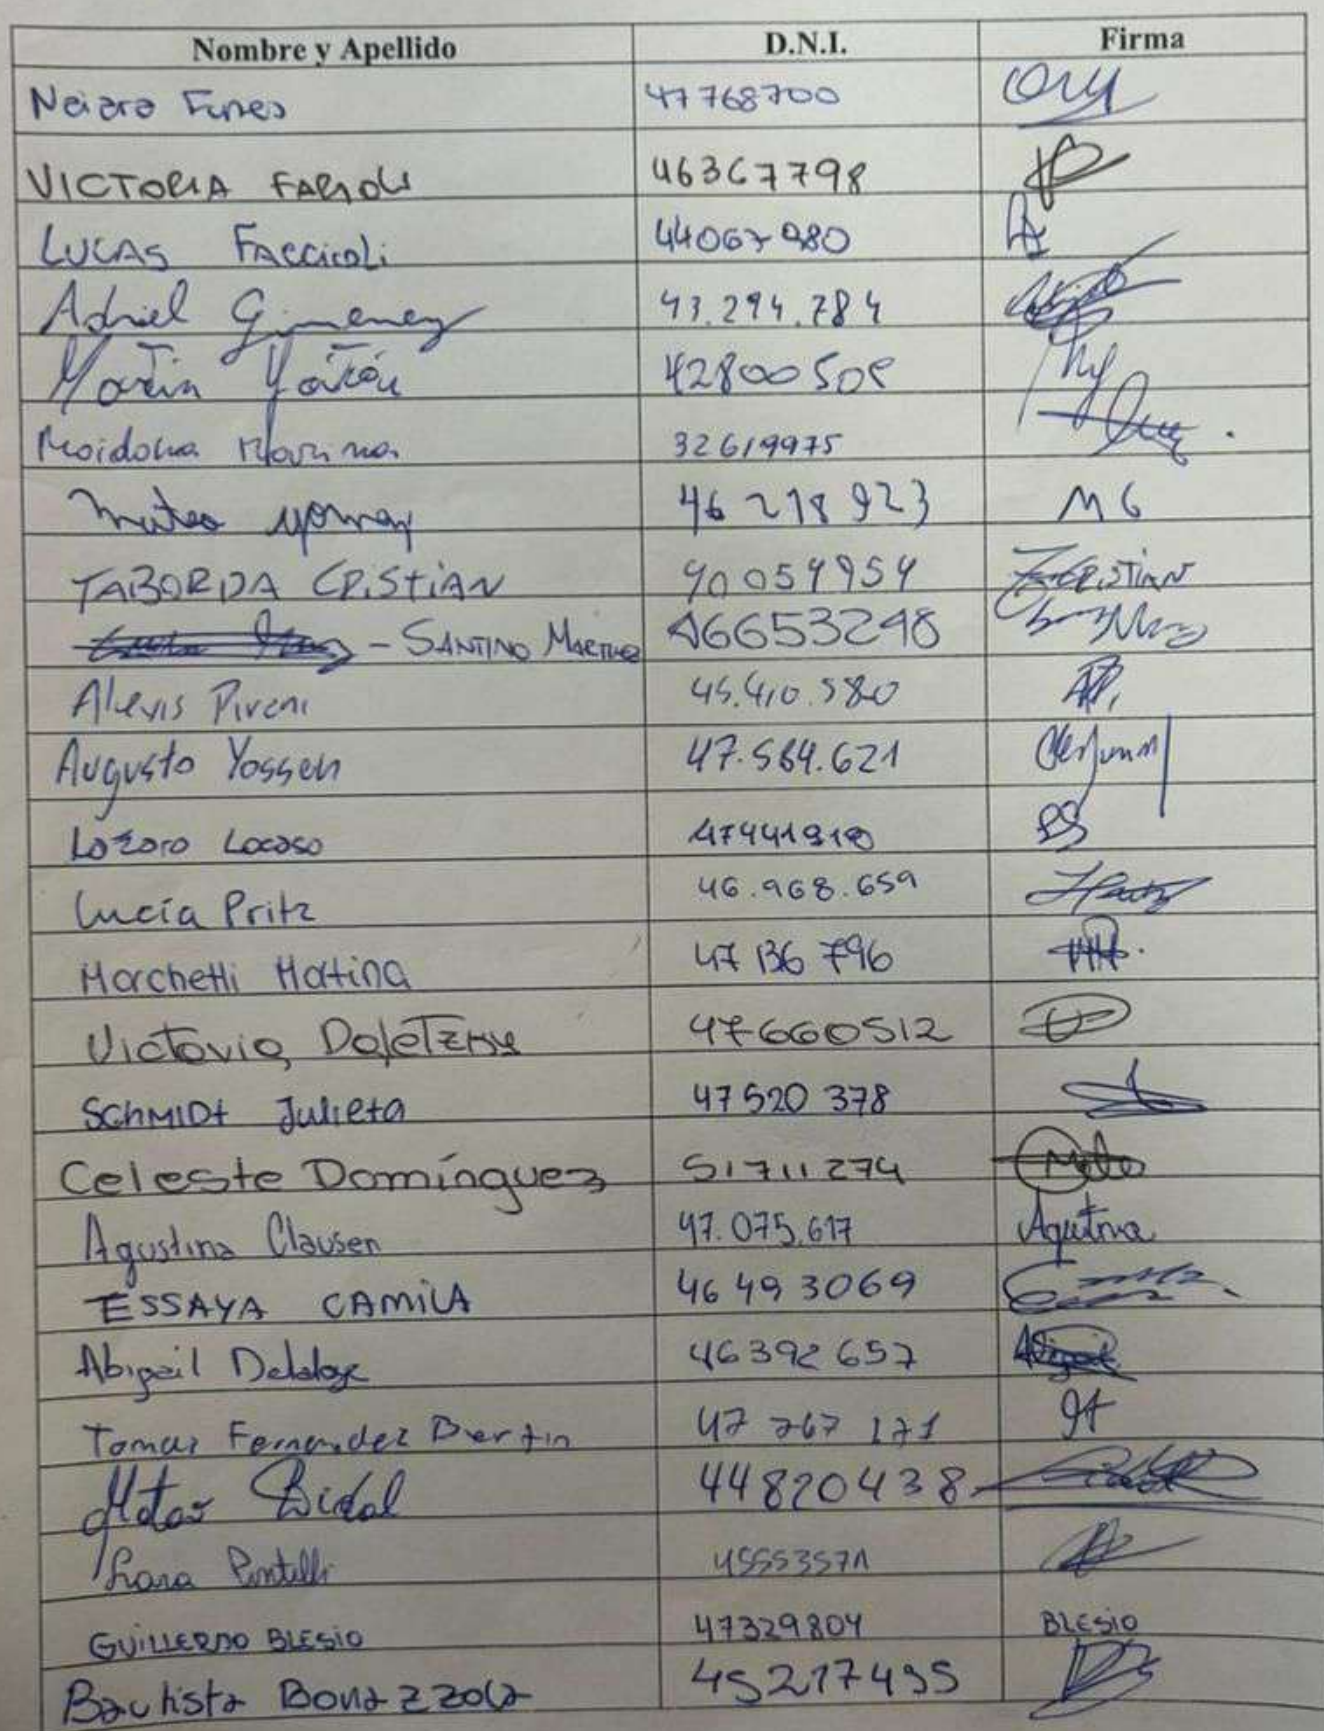 Nombre y Apellido D.N.I. Firma
Neiara Funes 47768700
VICTORIA FARIOLI 46367798
LUCAS FACCIOLI 44067980
Adriel Gimenez 43.294.784
Martin 42800508
Moidana Marina 32619975
Mateo 46 218 923 MG
TABORDA CRISTIAN 40054954 CRISTIAN
- SANTINO MARTINEZ 46653248
Alexis Pireni 45.410.580
Augusto Yossen 47.564.621
Lazaro Locaso 47441910
Lucía Pritz 46.968.659
Marchetti Martina 47 136 796
Victoria 47660512
SCHMIDt Julieta 47 520 378
Celeste Domínguez 51711274
Agustina Clausen 47.075.617 Agustina
ESSAYA CAMILA 46 493069
Abigail 46392657
Tomas Fernandez Bertin 47 767 171
Bidal 44820438
Lara Pontelli 45553571
GUILLERMO BLESIO 47329804 BLESIO
Bautista Bonazzola 45217495